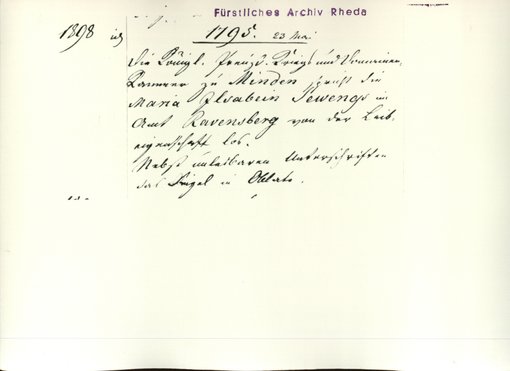 Fürstliches Archiv Rheda
1898
1795. 23 Mai
Die Königl. Preuß. Kriegs und Domainen
Kammer zu Minden spricht die
Maria Ilsabein Tewengs im
Amt Ravensberg von der Leib-
eigenschaft los.
Nebst unlesbaren Unterschriften
das Siegel in Oblate.